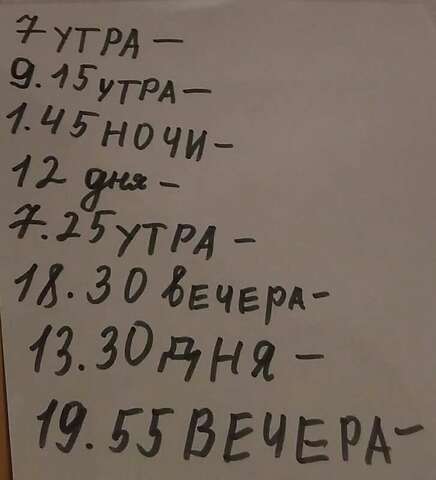 7 УТРА —
9.15 УТРА —
1.45 НОЧИ —
12 дня —
7.25 УТРА —
18.30 ВЕЧЕРА —
13.30 ДНЯ —
19.55 ВЕЧЕРА —